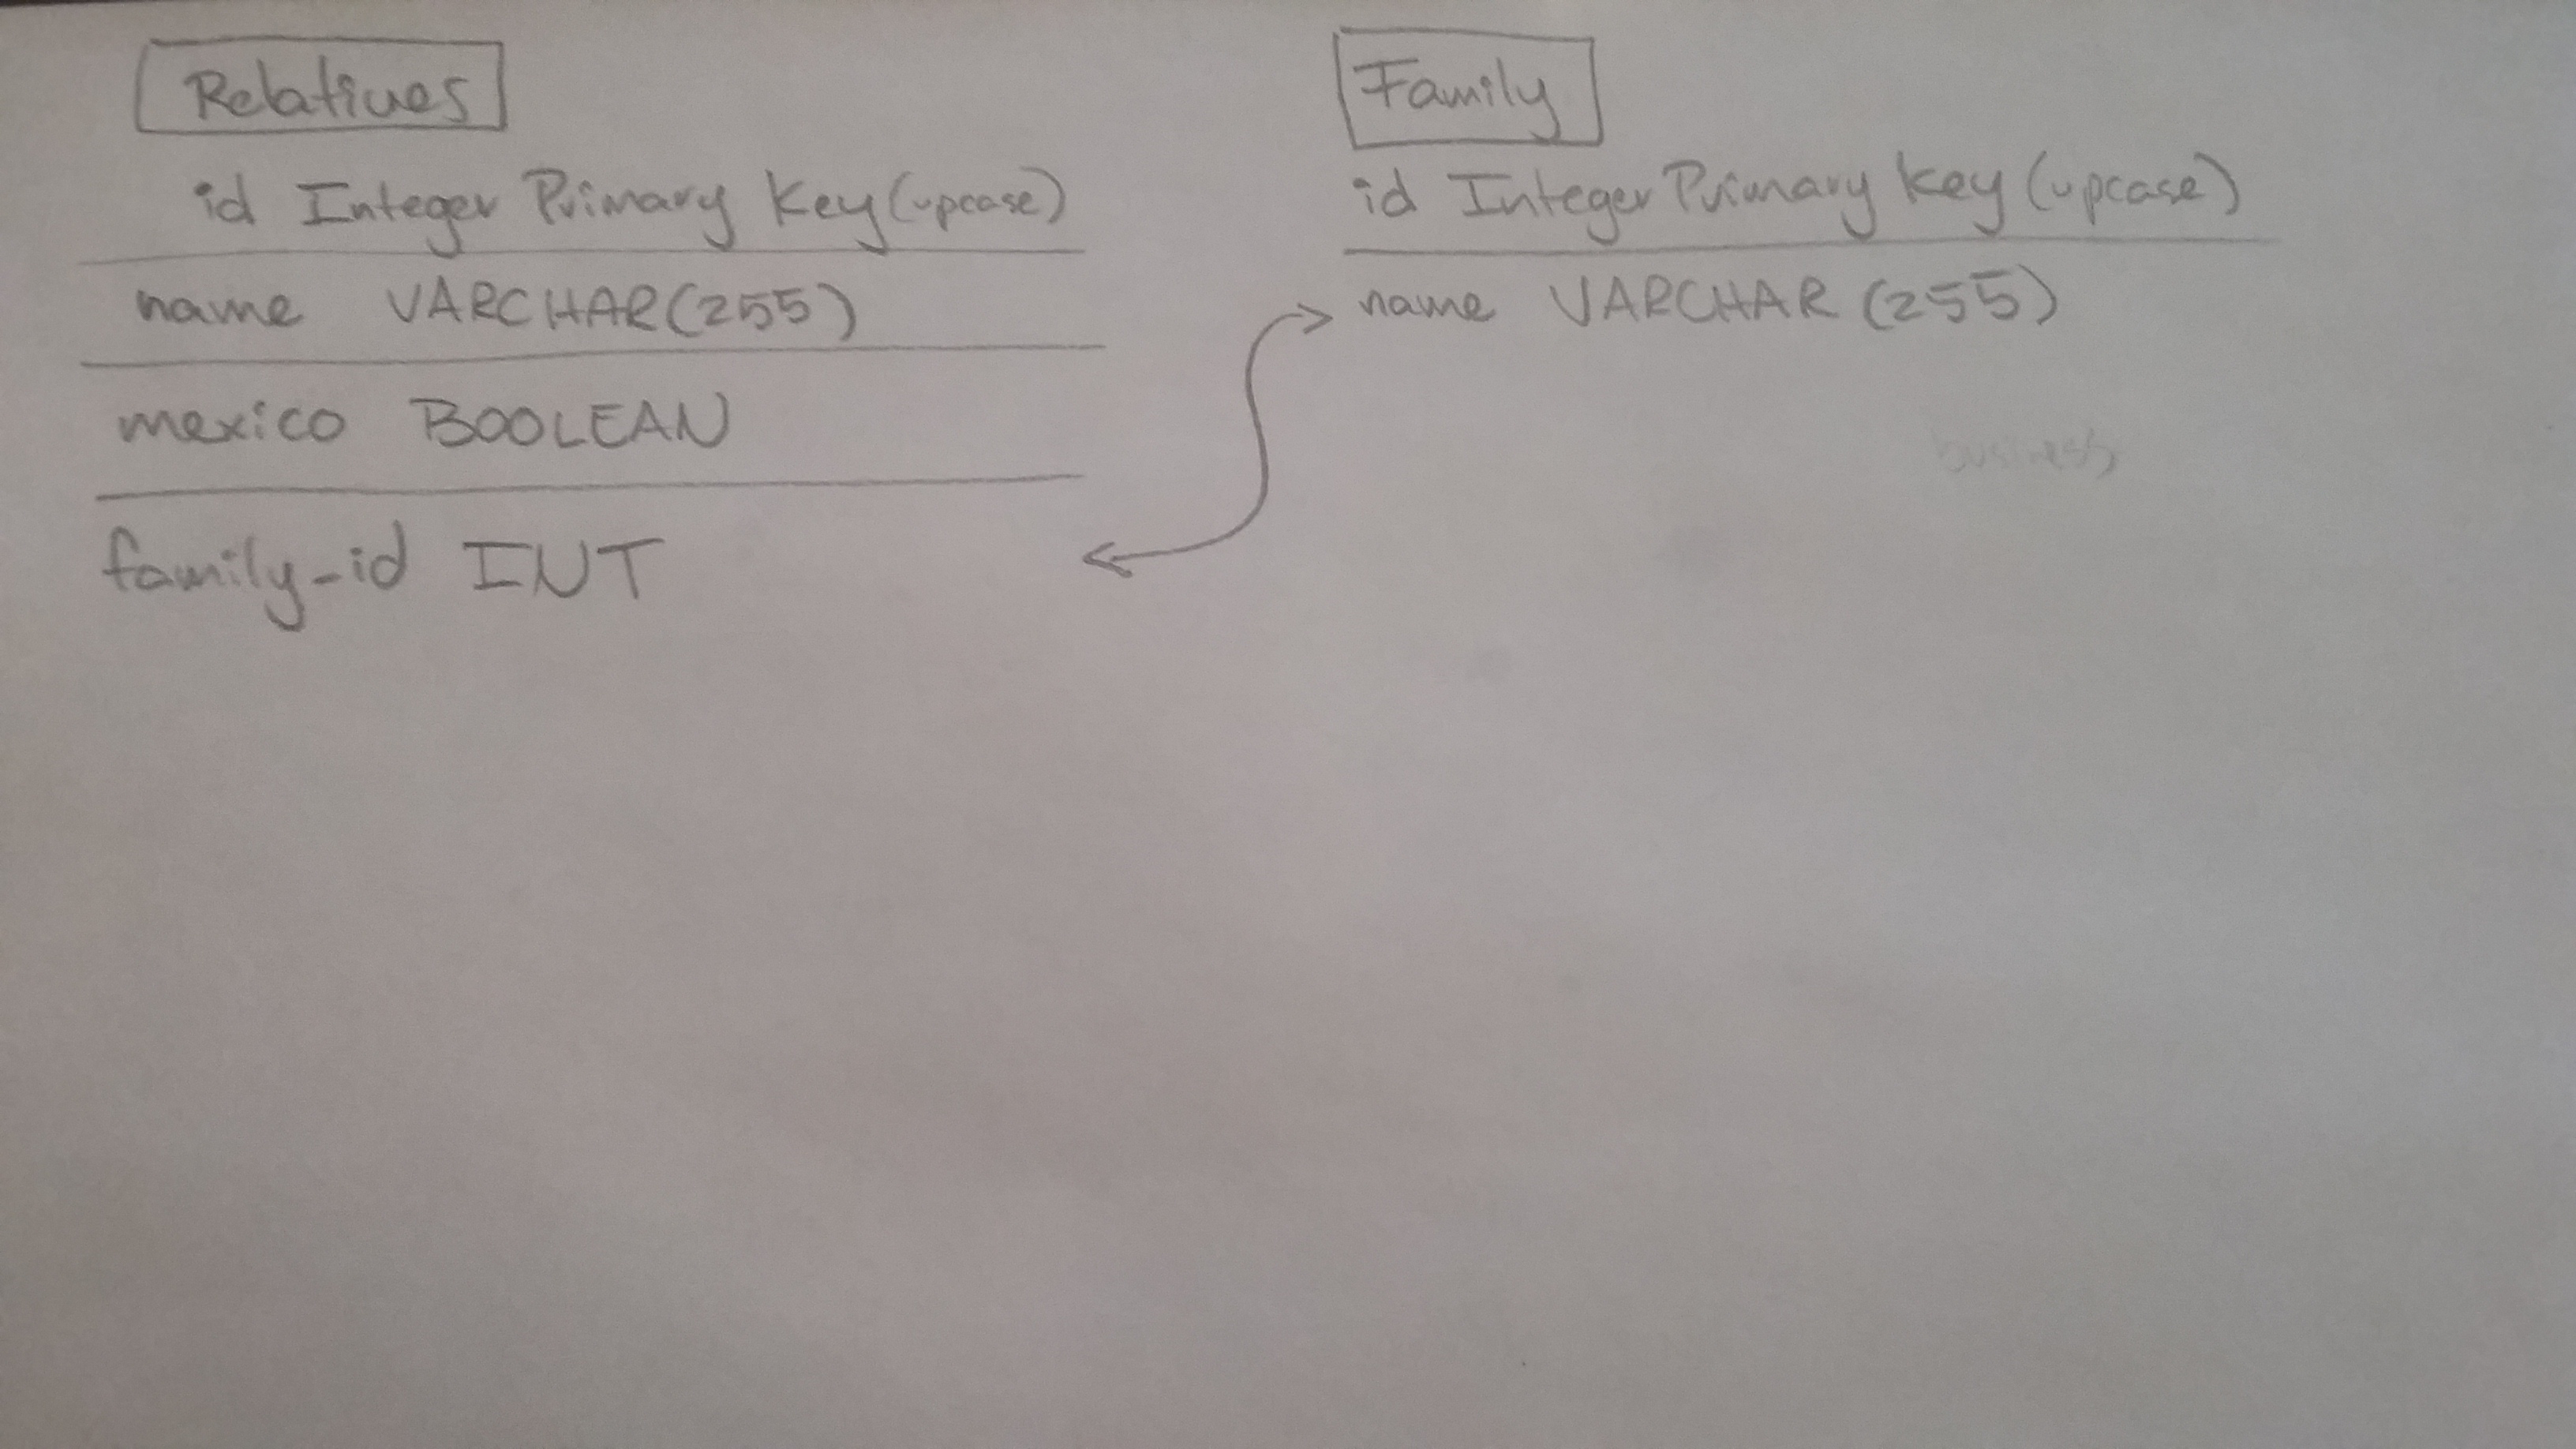 Relatives
id Integer Primary Key (upcase)
name VARCHAR(255)
mexico BOOLEAN
family_id INT
Family
id Integer Primary Key (upcase)
name VARCHAR (255)
business